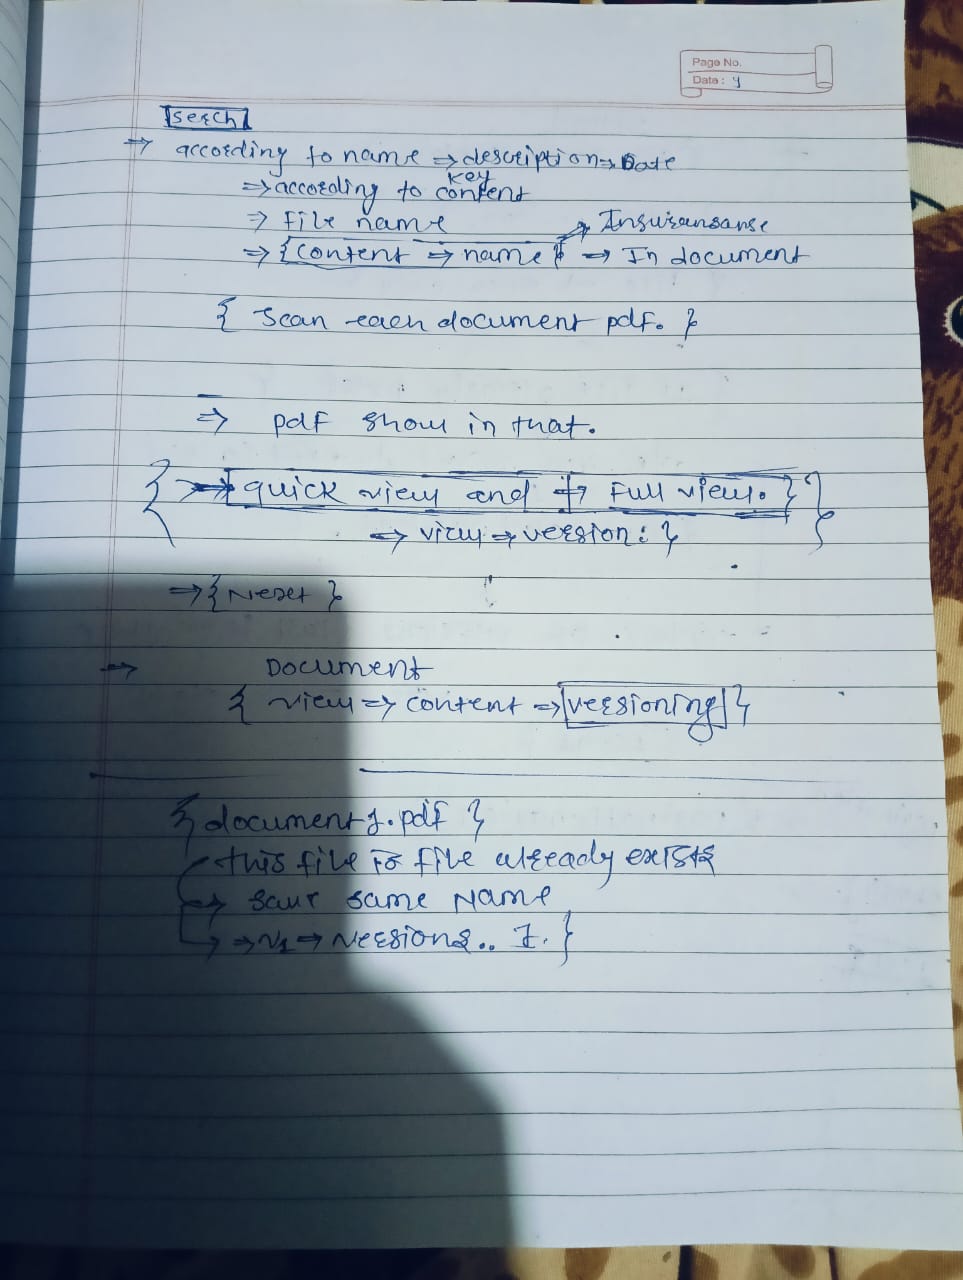 Page No.
Date: y
Serch
⇒ according to name ⇒ description ⇒ Date
⇒ according to key content
⇒ File name ⇒ Insuransanse
⇒ { content ⇒ name } ⇒ In document
{ Scan each document pdf. }
⇒ pdf show in that.
{ ⇒ quick view and ⇒ Full view. } }
⇒ view ⇒ version : }
⇒ { }
⇒ Document
{ view ⇒ content ⇒ versioning }
{ document1.pdf }
this file is file already exists
→ same Name
→ ⇒ V1 ⇒ Versions.. 1. }